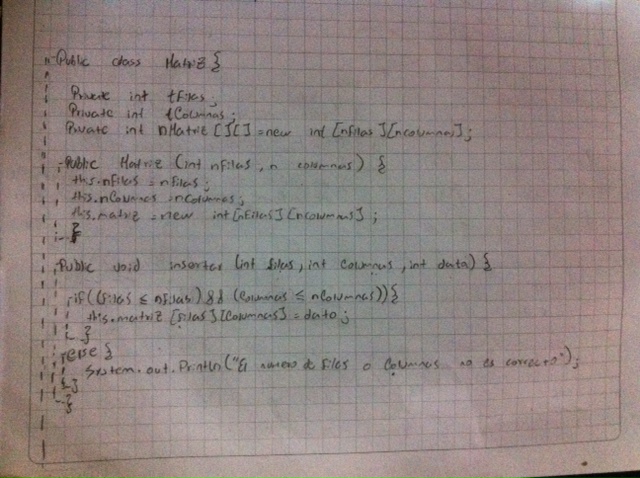 Public class Matriz {
Private int tFilas;
Private int tColumnas;
Private int nMatriz [][] = new int [nFilas][ncolumnas];
Public Matriz (int nFilas, n columnas) {
this.nFilas = nFilas;
this.nColumnas = ncolumnas;
this.matriz = new int [nFilas][ncolumnas];
}
Public void insertar (int filas, int columnas, int data) {
if ((filas ≤ nFilas) && (columnas ≤ nColumnas)) {
this.matriz [filas][columnas] = dato;
}
else {
System.out.Println ("El numero de filas o columnas no es correcto");
}
}